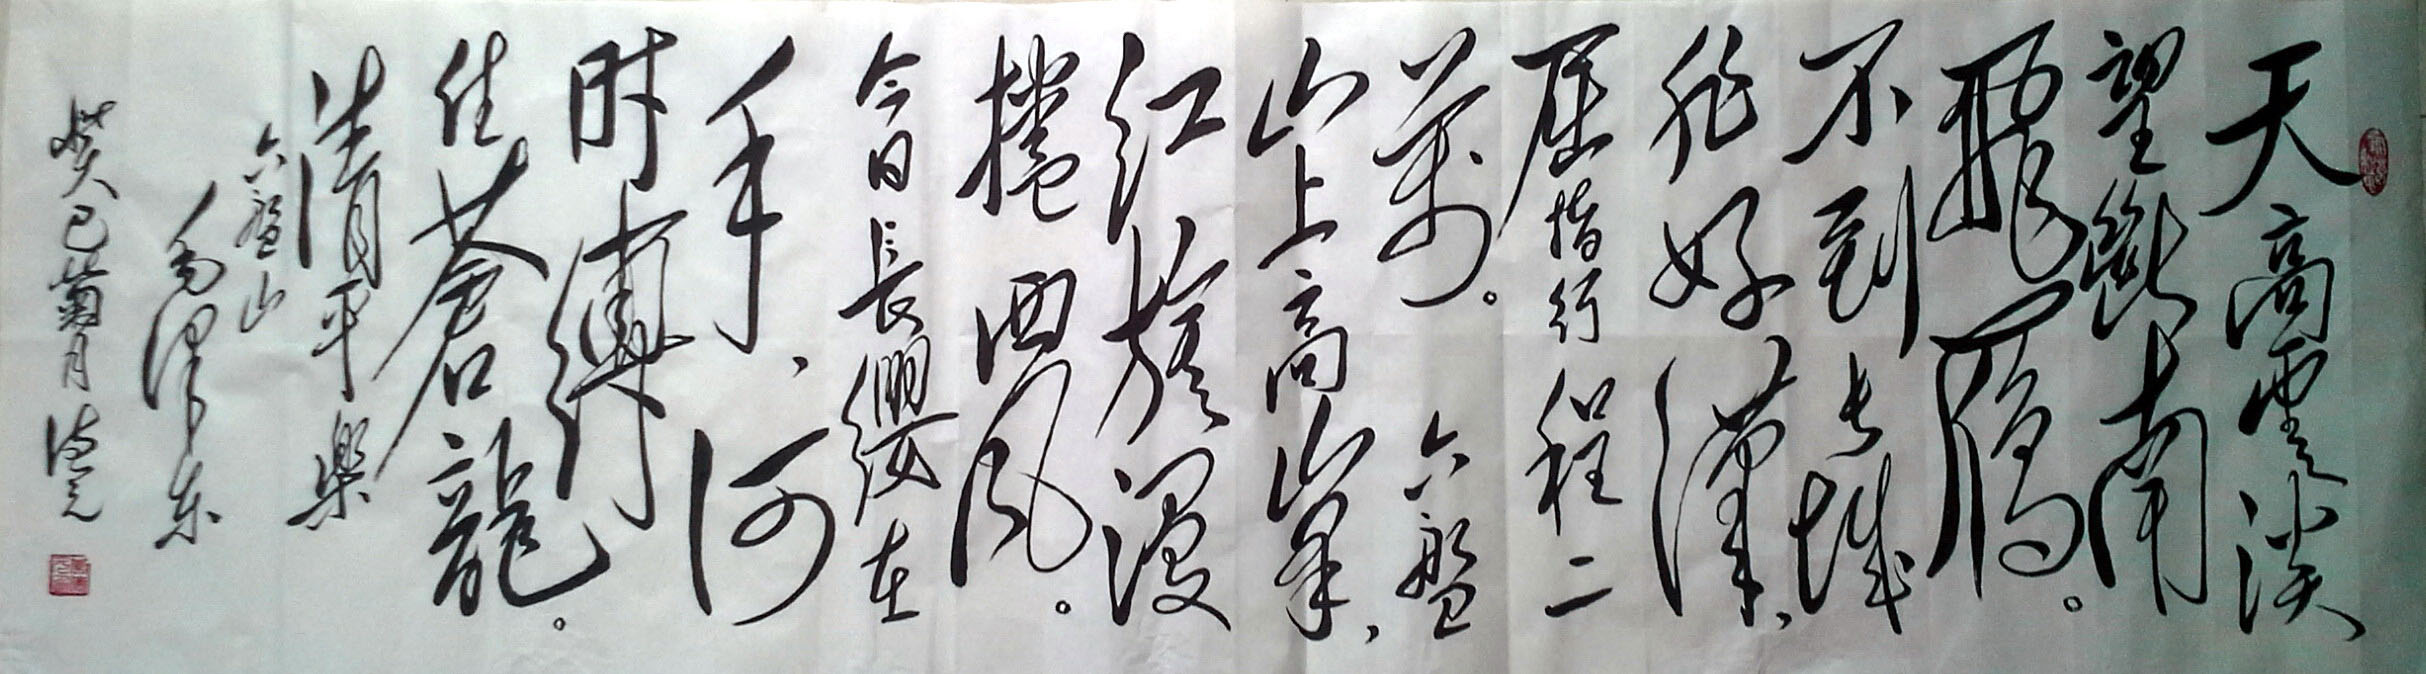 天高雲淡
望斷南
飛雁。
不到长城
非好漢、
屈指行程二
萬。六盤
山上高峯、
红旗漫
捲西风。
今日長纓在
手、何
时縛
住蒼龍。
清平樂
六盤山
毛泽东
癸巳菊月